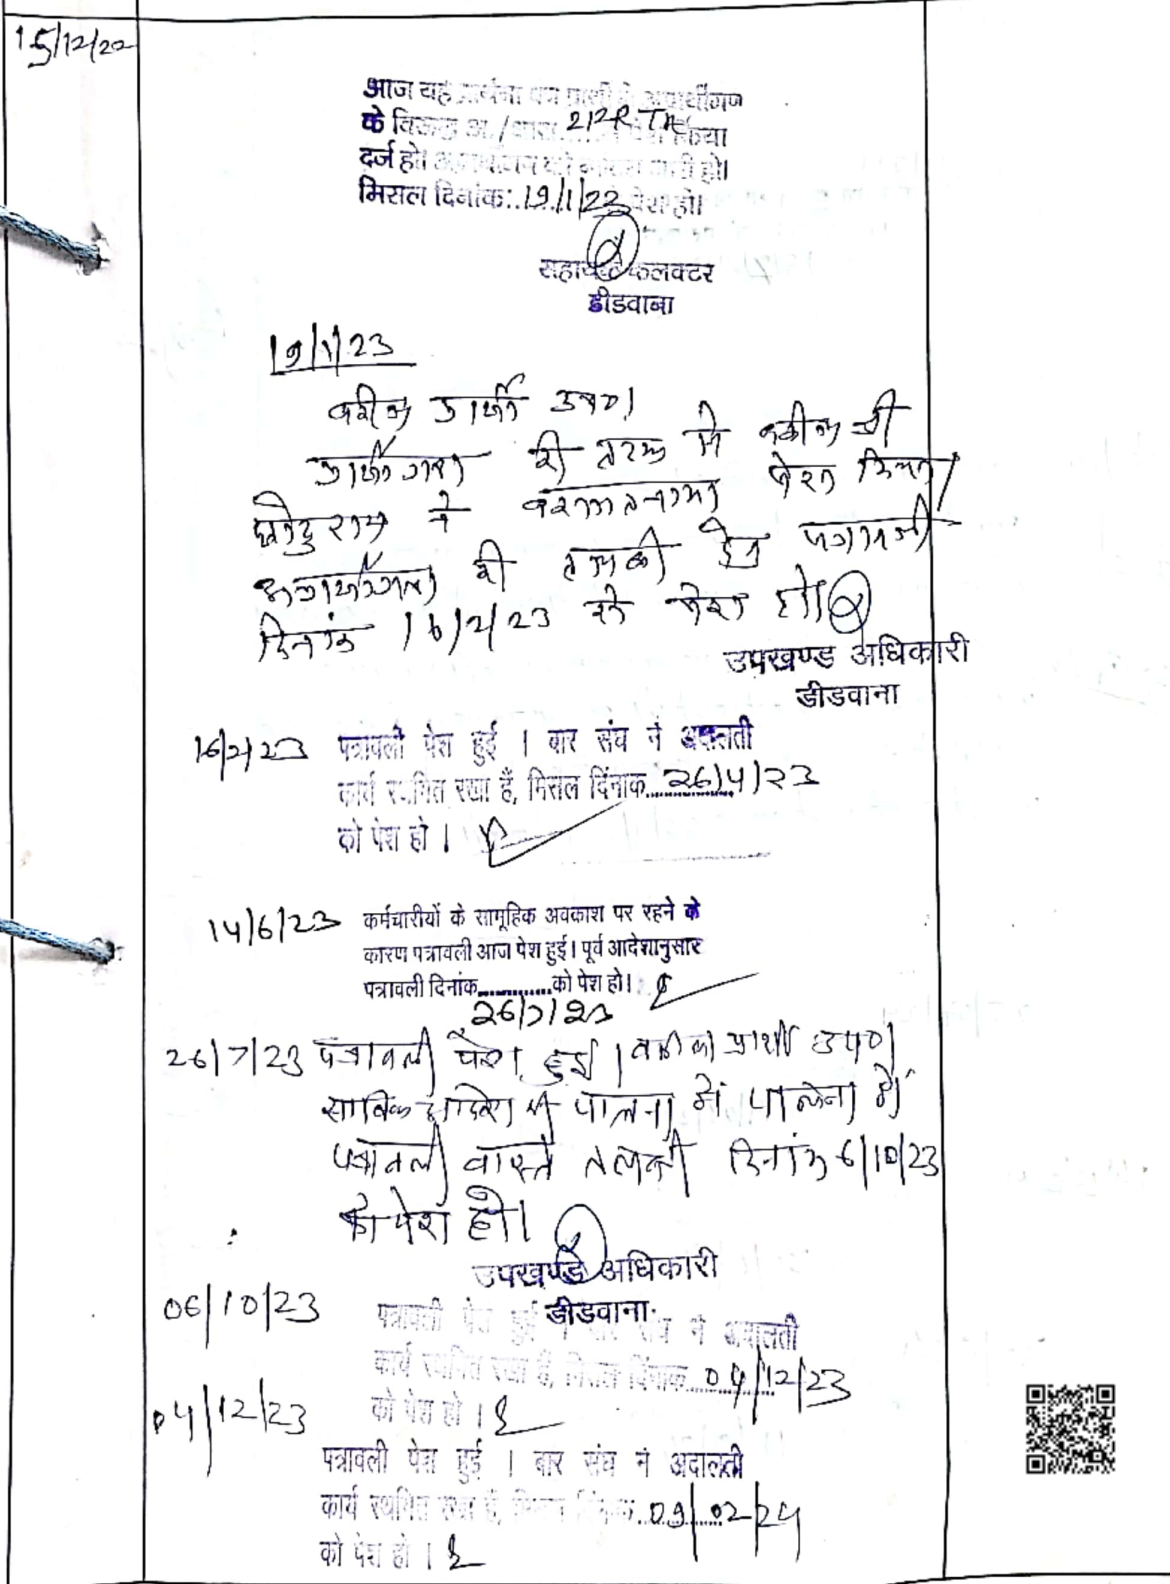 15/12/22
आज यह प्रार्थना पत्र प्रार्थी ने अप्रार्थीगण
के विरूद्ध अ./धारा 212 R.T.A किया
दर्ज हो। जारी हो।
मिसल दिनांक: 19/1/23 पेश हो।
सहायक कलक्टर
डीडवाना
19/1/23
वकील प्रार्थी उप0।
प्रार्थीगण की तरफ से वकील श्री
राम ने वकालतनामा पेश किया।
अप्रार्थीगण की तलबी हेतु पत्रावली
दिनांक 16/2/23 को पेश हो।
उपखण्ड अधिकारी
डीडवाना
16/2/23 पत्रावली पेश हुई । बार संघ ने अदालती
कार्य स्थगित रखा हैं, मिसल दिंनाक 26/4/23
को पेश हो ।
14/6/23 कर्मचारीयों के सामूहिक अवकाश पर रहने के
कारण पत्रावली आज पेश हुई। पूर्व आदेशानुसार
पत्रावली दिनांक.............को पेश हो।
26/7/23
26/7/23 पत्रावली पेश हुई । वकील प्रार्थी उप0।
साबिक आदेश की पालना में पालना हो।
पत्रावली वास्ते तलबी दिनांक 6/10/23
को पेश हो।
उपखण्ड अधिकारी
डीडवाना
06/10/23 पत्रावली पेश हुई । बार संघ ने अदालती
कार्य स्थगित रखा हैं, मिसल दिंनाक 04/12/23
को पेश हो ।
04/12/23
पत्रावली पेश हुई । बार संघ ने अदालती
कार्य स्थगित रखा हैं, मिसल दिंनाक 09/02/24
को पेश हो ।